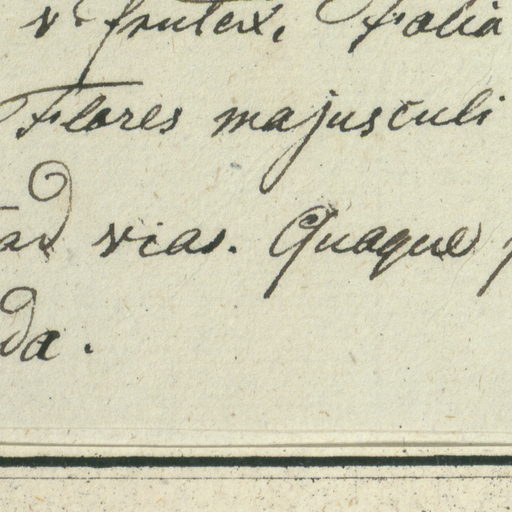 v. frutex. Folia
Flores majusculi
ad vias. Quaque
da.